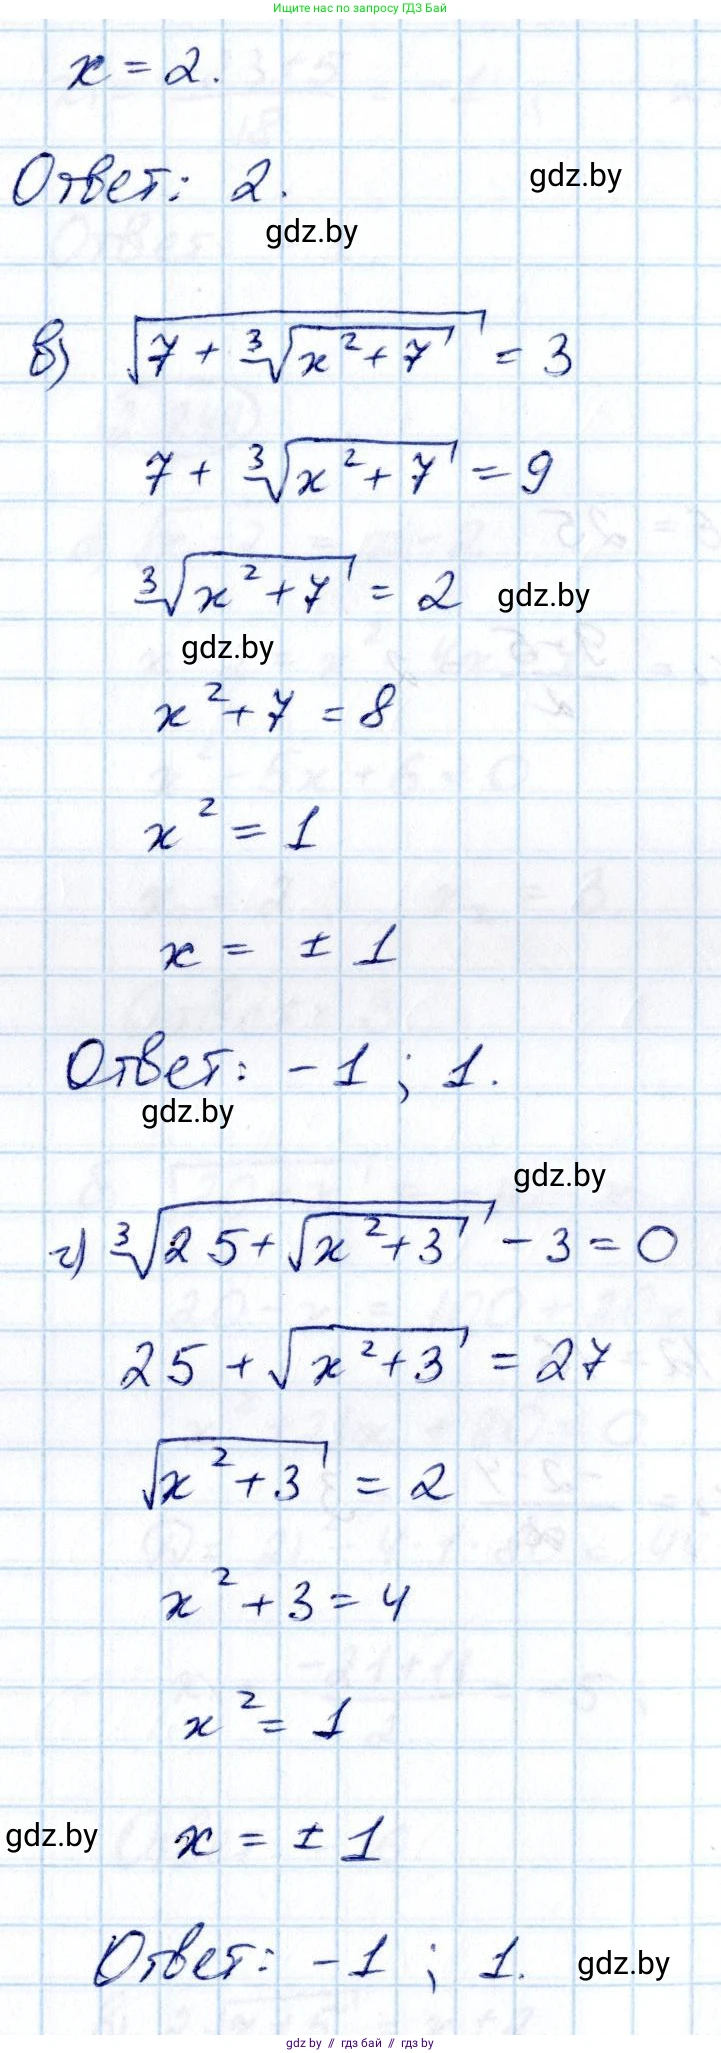 Ищите нас по запросу ГДЗ Бай
x = 2.
Ответ: 2.
gdz.by
gdz.by
в) √(7 + ∛(x² + 7)) = 3
7 + ∛(x² + 7) = 9
∛(x² + 7) = 2
gdz.by
gdz.by
x² + 7 = 8
x² = 1
x = ± 1
Ответ: -1 ; 1.
gdz.by
gdz.by
г) ∛(25 + √(x² + 3)) - 3 = 0
25 + √(x² + 3) = 27
√(x² + 3) = 2
x² + 3 = 4
x² = 1
gdz.by
x = ± 1
Ответ: -1 ; 1.
gdz.by
gdz.by // гдз бай // gdz.by